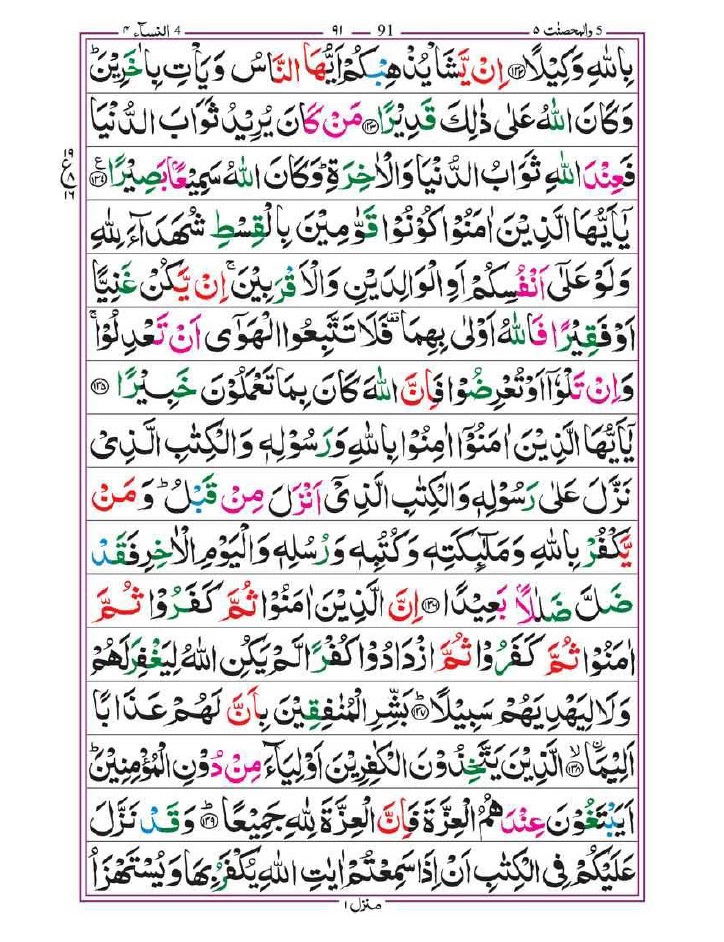 5 والمحصنت ۵ 91 — ۹۱ 4 النسآء ۴
بِاللّٰهِ وَكِيْلًا ﴿۱۳۲﴾ اِنْ يَّشَاْ يُذْهِبْكُمْ اَيُّهَا النَّاسُ وَيَاْتِ بِاٰخَرِيْنَ ؕ
وَكَانَ اللّٰهُ عَلٰى ذٰلِكَ قَدِيْرًا ﴿۱۳۳﴾ مَنْ كَانَ يُرِيْدُ ثَوَابَ الدُّنْيَا
فَعِنْدَ اللّٰهِ ثَوَابُ الدُّنْيَا وَالْاٰخِرَةِ ؕ وَكَانَ اللّٰهُ سَمِيْعًۢا بَصِيْرًا ﴿۱۳۴﴾ ع
۱۹ ع ۸ ۱۶
يٰۤاَيُّهَا الَّذِيْنَ اٰمَنُوْا كُوْنُوْا قَوّٰمِيْنَ بِالْقِسْطِ شُهَدَآءَ لِلّٰهِ
وَلَوْ عَلٰۤى اَنْفُسِكُمْ اَوِ الْوَالِدَيْنِ وَالْاَقْرَبِيْنَ ۚ اِنْ يَّكُنْ غَنِيًّا
اَوْ فَقِيْرًا فَاللّٰهُ اَوْلٰى بِهِمَا ۫ فَلَا تَتَّبِعُوا الْهَوٰۤى اَنْ تَعْدِلُوْا ۚ
وَاِنْ تَلْوٗۤا اَوْ تُعْرِضُوْا فَاِنَّ اللّٰهَ كَانَ بِمَا تَعْمَلُوْنَ خَبِيْرًا ﴿۱۳۵﴾
يٰۤاَيُّهَا الَّذِيْنَ اٰمَنُوْۤا اٰمِنُوْا بِاللّٰهِ وَرَسُوْلِهٖ وَالْكِتٰبِ الَّذِىْ
نَزَّلَ عَلٰى رَسُوْلِهٖ وَالْكِتٰبِ الَّذِىْۤ اَنْزَلَ مِنْ قَبْلُ ؕ وَمَنْ
يَّكْفُرْ بِاللّٰهِ وَمَلٰٓئِكَتِهٖ وَكُتُبِهٖ وَرُسُلِهٖ وَالْيَوْمِ الْاٰخِرِ فَقَدْ
ضَلَّ ضَلٰلًۢا بَعِيْدًا ﴿۱۳۶﴾ اِنَّ الَّذِيْنَ اٰمَنُوْا ثُمَّ كَفَرُوْا ثُمَّ
اٰمَنُوْا ثُمَّ كَفَرُوْا ثُمَّ ازْدَادُوْا كُفْرًا لَّمْ يَكُنِ اللّٰهُ لِيَغْفِرَ لَهُمْ
وَلَا لِيَهْدِيَهُمْ سَبِيْلًا ﴿۱۳۷﴾ ؕ بَشِّرِ الْمُنٰفِقِيْنَ بِاَنَّ لَهُمْ عَذَابًا
اَلِيْمَا ﴿۱۳۸﴾ ۙ الَّذِيْنَ يَتَّخِذُوْنَ الْكٰفِرِيْنَ اَوْلِيَآءَ مِنْ دُوْنِ الْمُؤْمِنِيْنَ ؕ
اَيَبْتَغُوْنَ عِنْدَهُمُ الْعِزَّةَ فَاِنَّ الْعِزَّةَ لِلّٰهِ جَمِيْعًا ﴿۱۳۹﴾ ؕ وَقَدْ نَزَّلَ
عَلَيْكُمْ فِى الْكِتٰبِ اَنْ اِذَا سَمِعْتُمْ اٰيٰتِ اللّٰهِ يُكْفَرُ بِهَا وَيُسْتَهْزَاُ
منزل ۱